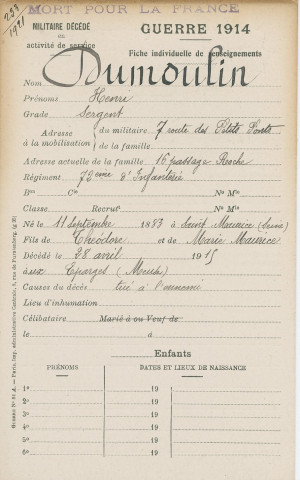 MORT POUR LA FRANCE
293
1921
MILITAIRE DÉCÉDÉ
en
activité de service
GUERRE 1914
Fiche individuelle de renseignements
Nom Dumoulin
Prénoms Henri
Grade Sergent
Adresse à la mobilisation du militaire 7 route des Petits Ponts
de la famille
Adresse actuelle de la famille 15 passage Roche
Régiment 72eme d'Infanterie
Bon Cie No Mle
Classe Recrutt No Mle
Né le 11 septembre 1883 à Saint Maurice (Seine)
Fils de Théodore et de Marie Maurice
Décédé le 28 avril 1915
à aux Eparges (Meuse)
Causes du décès tué à l'ennemi
Lieu d'inhumation
Célibataire Marié à ou Veuf de
le à
Enfants
PRÉNOMS DATES ET LIEUX DE NAISSANCE
1o 19
2o 19
3o 19
4o 19
5o 19
6o 19
Guerre No 24 A. — Paris, imp. administrative Centrale, 8, rue de Furstenberg.